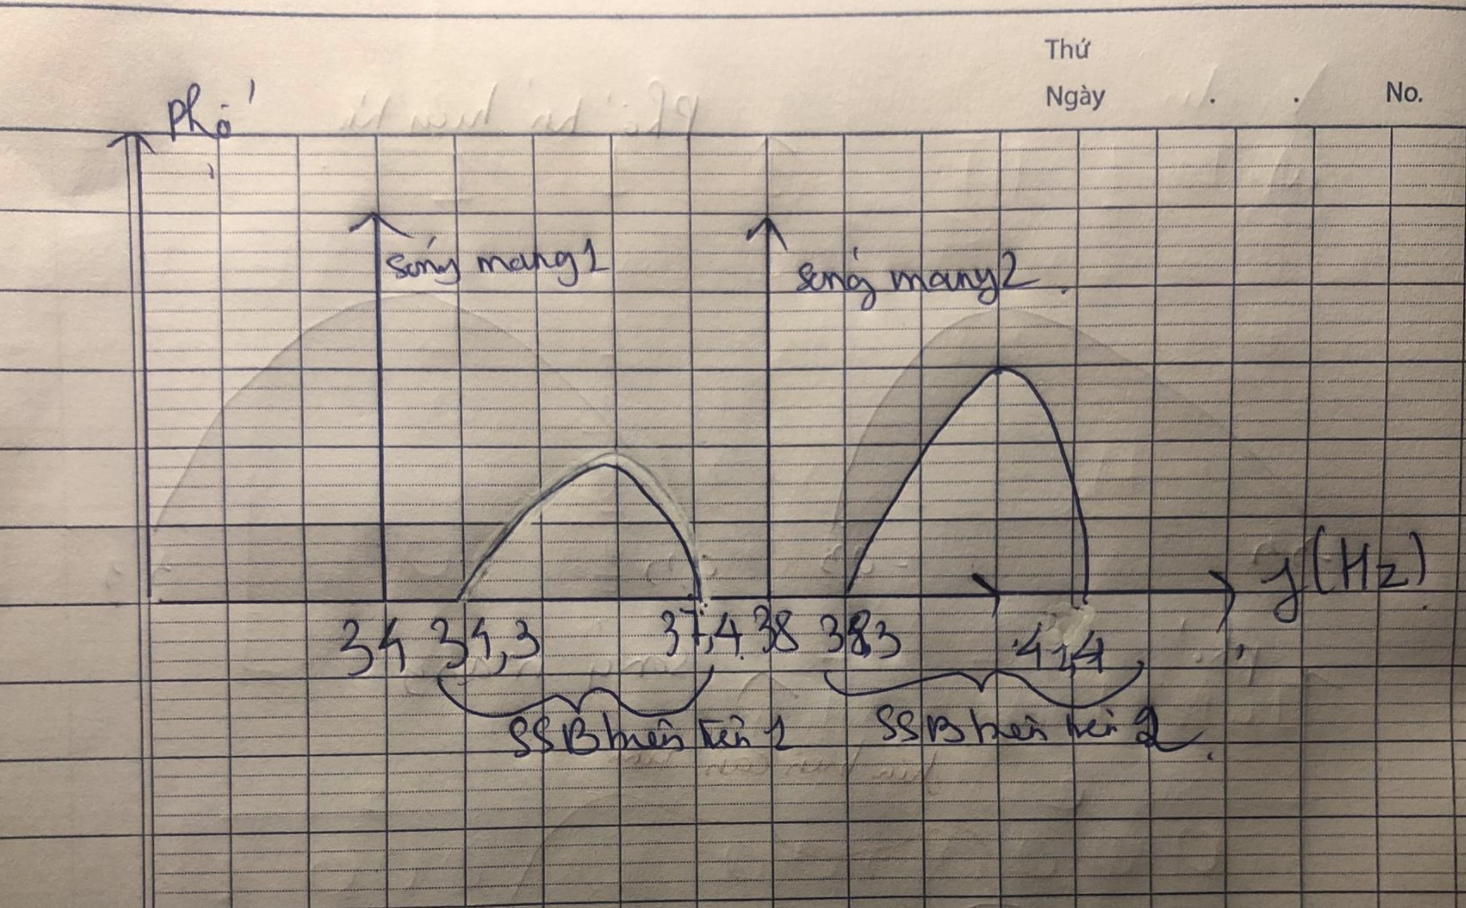 Thứ
Ngày . . No.
Phổ
sóng mang 1
sóng mang 2
f(Hz)
34 34,3 37,4 38 38,3 41,4
SSB biên trên 1 SSB biên trên 2